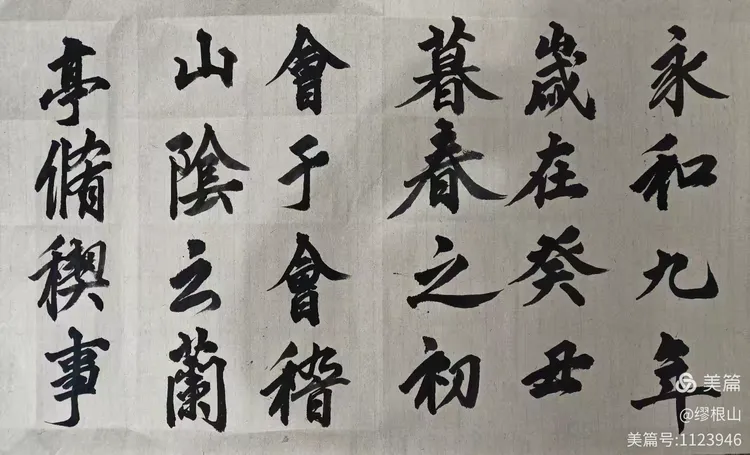 永和九年
歲在癸丑
暮春之初
會于會稽
山陰之蘭
亭脩稧事
美篇
@缪根山
美篇号:1123946